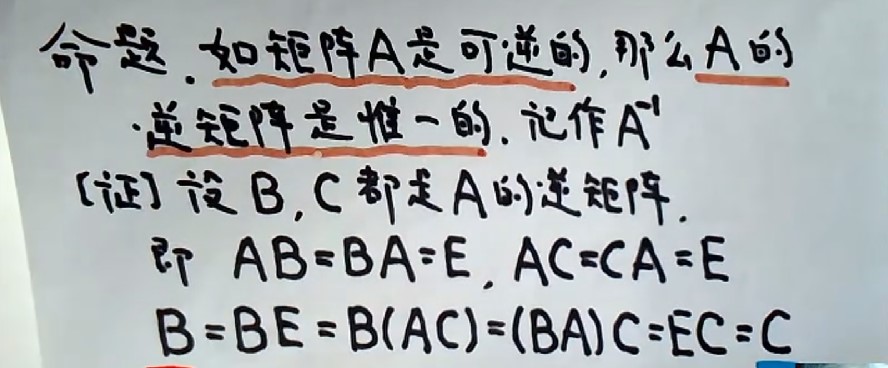 命题.如矩阵A是可逆的,那么A的
逆矩阵是惟一的.记作A⁻¹
[证]设B,C都是A的逆矩阵.
即 AB=BA=E, AC=CA=E
B=BE=B(AC)=(BA)C=EC=C